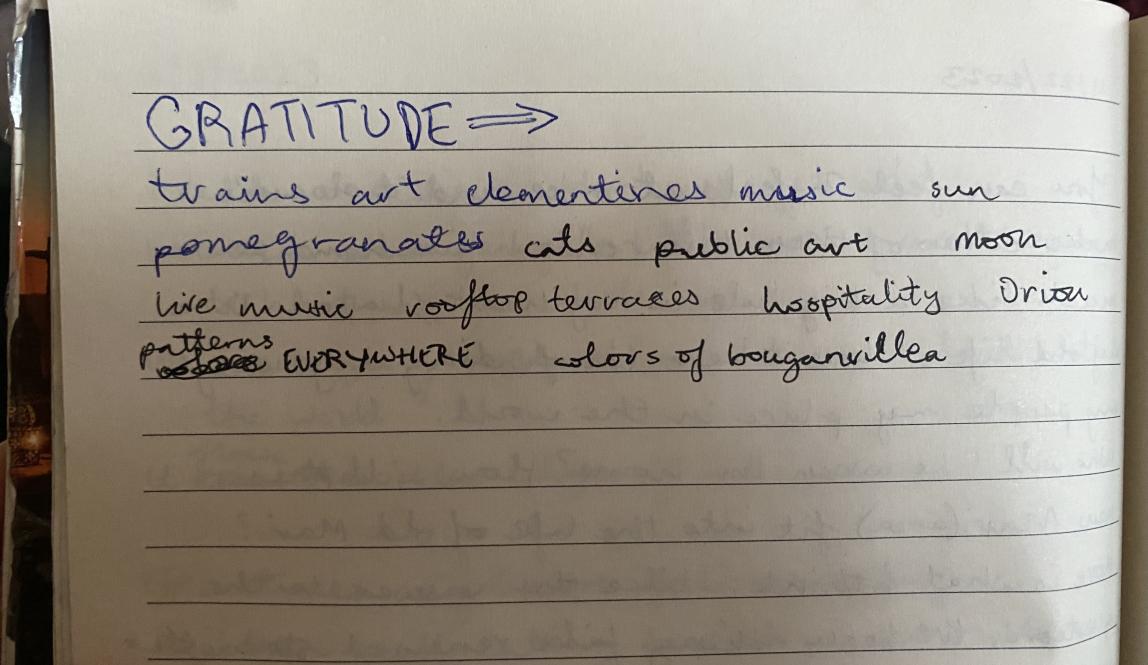 GRATITUDE ⇒
trains art clementines music sun
pomegranates cats public art moon
live music rooftop terraces hospitality Orion
patterns EVERYWHERE colors of bouganvillea